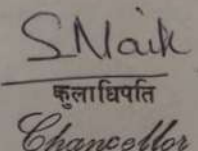 SNaik
कुलाधिपति
Chancellor